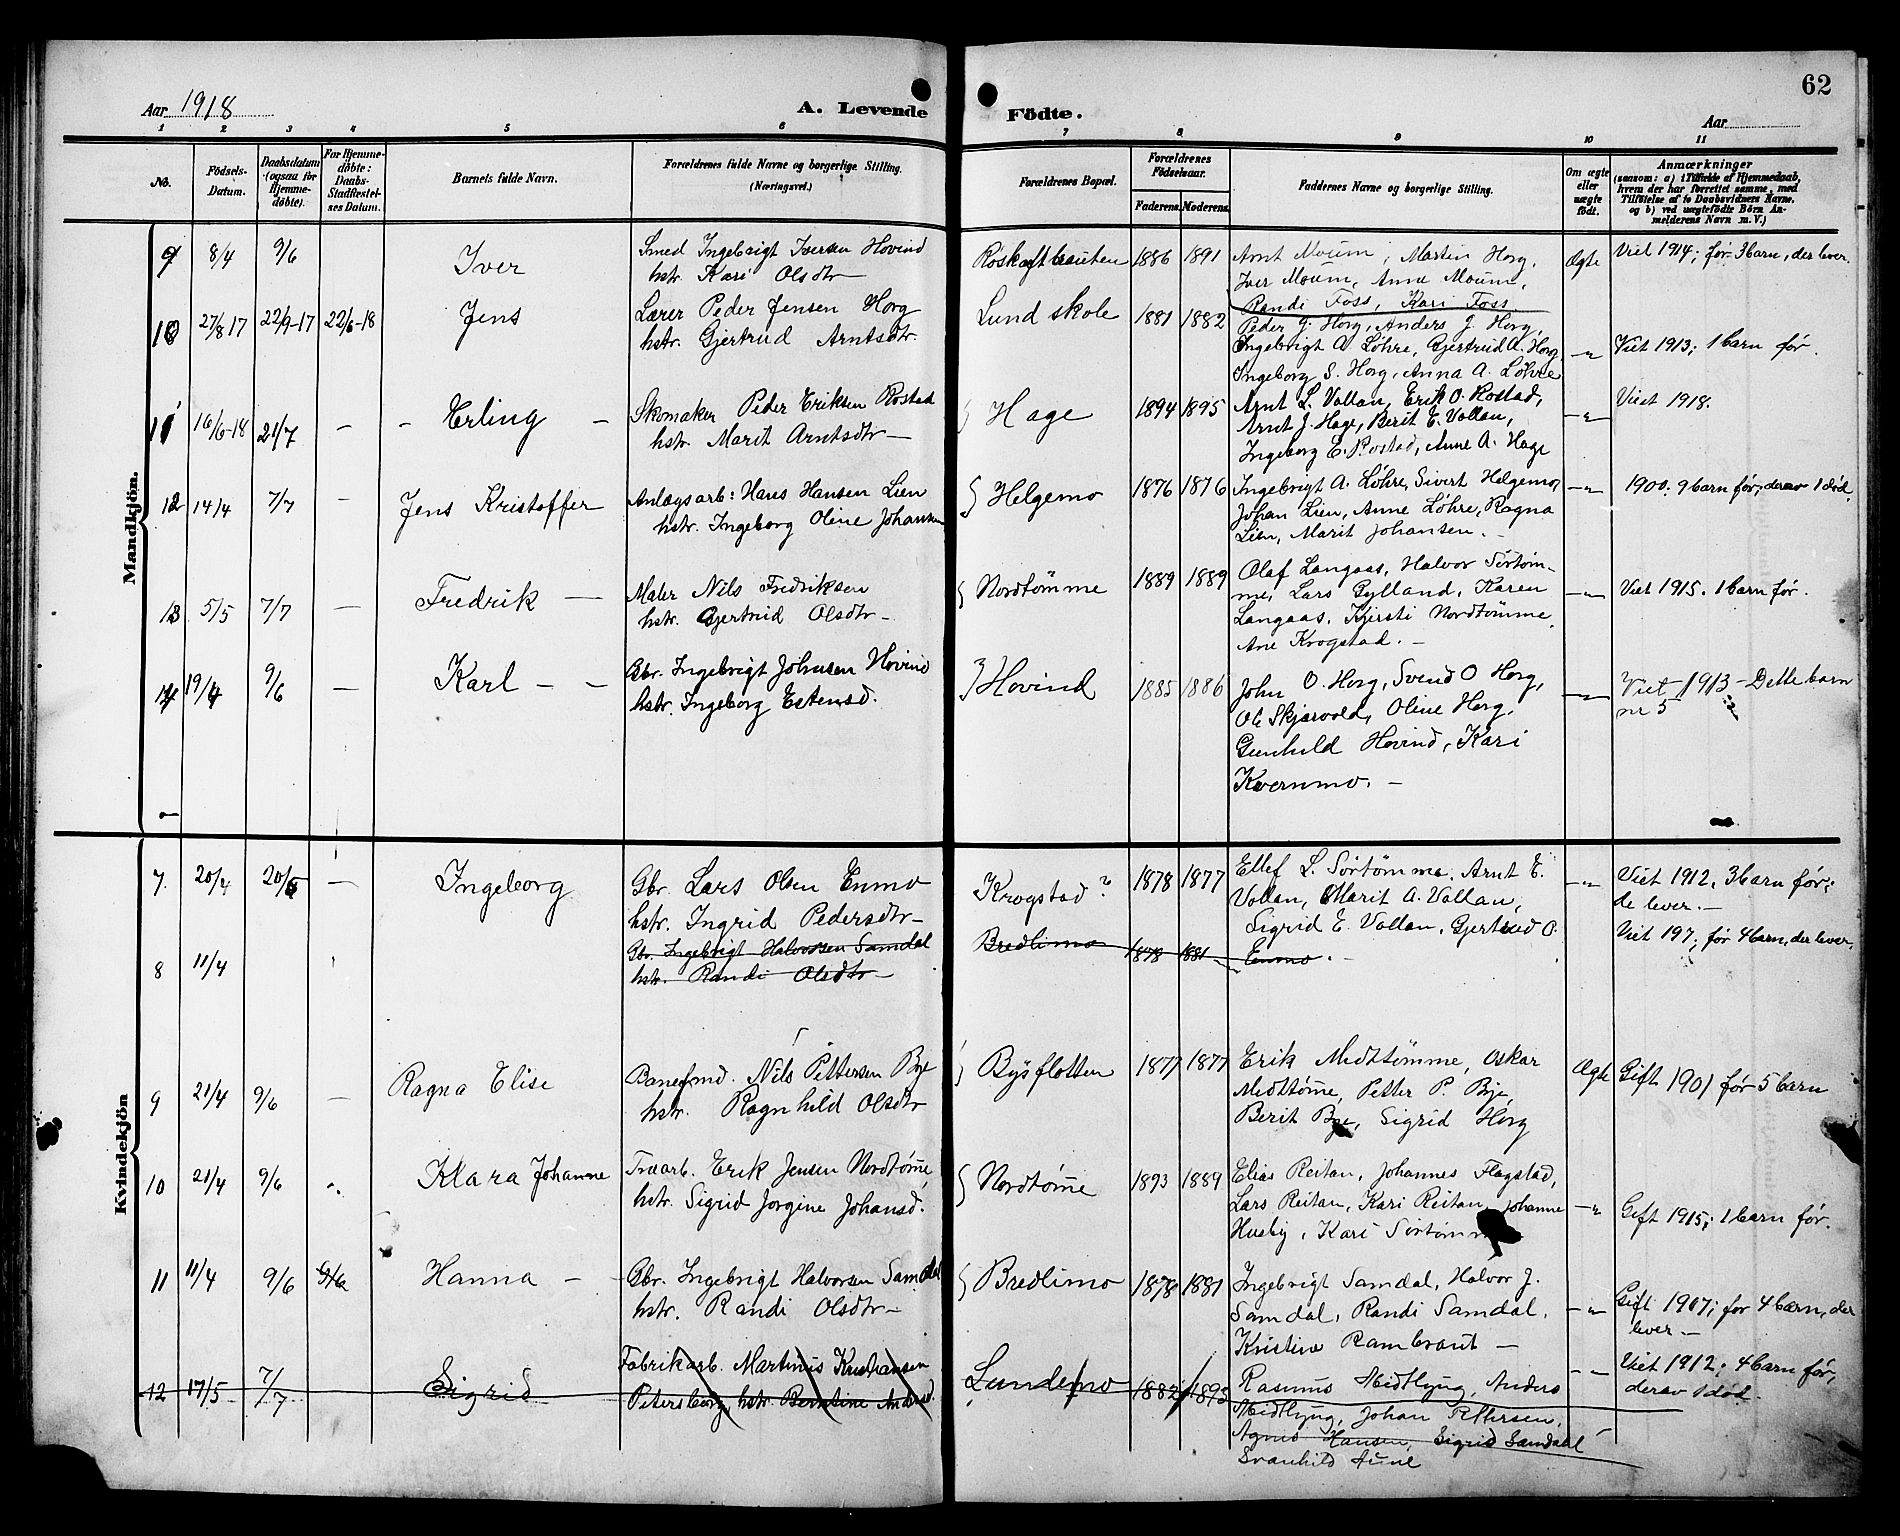 62
Aar 1918
A. Levende Födte.
Aar
1 2 3 4 5 6 7 8 9 10 11
No.
Födsels-Datum.
Daabsdatum (ogsaa for Hjemme-döbte).
For Hjemme-döbte: Daabs-Stadfæstel-ses Datum.
Barnets fulde Navn.
Forældrenes fulde Navne og borgerlige Stilling.
(Næringsvei.)
Forældrenes Bopæl.
Forældrenes Födselsaar.
Faderens. Moderens.
Faddernes Navne og borgerlige Stilling.
Om ægte eller uægte födt.
Anmærkninger
(saasom: a) i Tilfælde af Hjemmedaab,
hvem der har forrettet samme, med
Tilföielse af to Daabsvidners Navne,
og b) ved uægtefödte Börn An-
melderens Navn m. V.)
Mandkjön.
9 8/4 9/6 Iver Smed Ingebrigt Iversen Hovind
hstr. Kari Olsdtr
Roskaftbrauten 1886 1891 Arnt Moum, Martin Horg,
Iver Moum, Anne Moum,
Randi Foss, Kari Foss
Ægte Viet 1914; før 3 barn, der lever.
10 27/8 17 22/9-17 22/6-18 Jens Lærer Peder Jensen Horg
hstr. Gjertrud Arntsdtr.
Lund skole 1881 1882 Peder J. Horg, Anders J. Horg,
Ingebrigt A. Løhre, Gjertrud A. Horg
Ingeborg S. Horg, Anna A. Løhre
-"- Viet 1913; 1 barn før.
11 16/6-18 21/7 - - Erling - Skomaker Peder Eriksen Rostad
hstr. Marit Arntsdtr -
Hage 1894 1895 Arnt L. Vollan, Erik O. Rostad,
Arnt J. Hage, Berit E. Vollan,
Ingeborg E. Rostad, Anne A. Hage
-"- Viet 1918.
12 14/4 7/7 - Jens Kristoffer Anlægsarb: Hans Hansen Lien
hstr. Ingeborg Oline Johansen
Helgemo 1876 1876 Ingebrigt A. Løhre, Sivert Helgemo,
Johan Lien, Anne Løhre, Ragna
Lien, Marit Johansen. -
-"- 1900. 9 barn før, derav 1 død.
13 5/5 7/7 - Fredrik - Maler Nils Fredriksen
hstr. Gjertrud Olsdtr -
Nordtømme 1889 1889 Olaf Langaas, Halvor Sørtøm-
me, Lars Gylland, Karen
Langaas, Kjersti Nordtømme,
Ane Krogstad. -
-"- Viet 1915. 1 barn før.
14 19/4 9/6 - Karl - - Gbr. Ingebrigt Johnsen Hovind
hstr. Ingeborg Estensd.
Hovind 1885 1886 John O. Horg, Svend O Horg,
Ole Skjærvold, Oline Horg,
Gunhild Hovind, Kari
Kvernmo. -
-"- Viet 1913 - Dette barn
nr 5
Kvindekjön
7. 20/4 20/5 - Ingeborg Gbr. Lars Olsen Enmo
hstr. Ingrid Pedersdtr -
Krogstad? 1878 1877 Ellef L. Sørtømme, Arnt E.
Vollan, Marit A. Vollan,
Sigrid E. Vollan, Gjertrud O.
Enmo. -
-"- Viet 1912. 3 barn før;
de lever. -
8 11/4 Gbr. Ingebrigt Halvorsen Samdal
hstr. Randi Olsdtr -
Bredlimo 1878 1881
Viet 197; før 4 barn, der lever,
9 21/4 9/6 - Ragna Elise Banefmd. Nils Pettersen Bye
hstr. Ragnhild Olsdtr
Bysflotten 1877 1877 Erik Midttømme, Oskar
Midttøm̄e, Petter P. Bye,
Berit Bye, Sigrid Horg
Ægte Gift 1901 før 5 barn
10 21/4 9/6 Klara Johanne Træarb. Erik Jensen Nordtøm̄e,
hstr. Sigrid Jorgine Johansd.
Nordtøm̄e 1893 1889 Elias Reitan, Johannes Flagstad,
Lars Reitan, Kari Reitan, Johanne
Husby, Kari Sørtømm
-"- Gift 1915; 1 barn før.
11 11/4 9/6 Hanna - - Gbr. Ingebrigt Halvorsen Samdal
hstr. Randi Olsdtr -
Bredlimo 1878 1881 Ingebrigt Samdal, Halvor J.
Samdal, Randi Samdal,
Kristine Rambraut -
-"- Gift 1907; før 4 barn, der
lever -
12 17/5 7/7 Sigrid Fabrikarb. Martinus Kristiansen
Petersborg, hstr. Berntine Andersd.
Lundemo 1882 1893 Rasmus Midtlyng, Anders
Midtlyng, Johan Pettersen,
Agnes Hansen, Sigrid Samdahl
Svanhild Aune
-"- Viet 1912; 4 barn før,
derav 1 død.